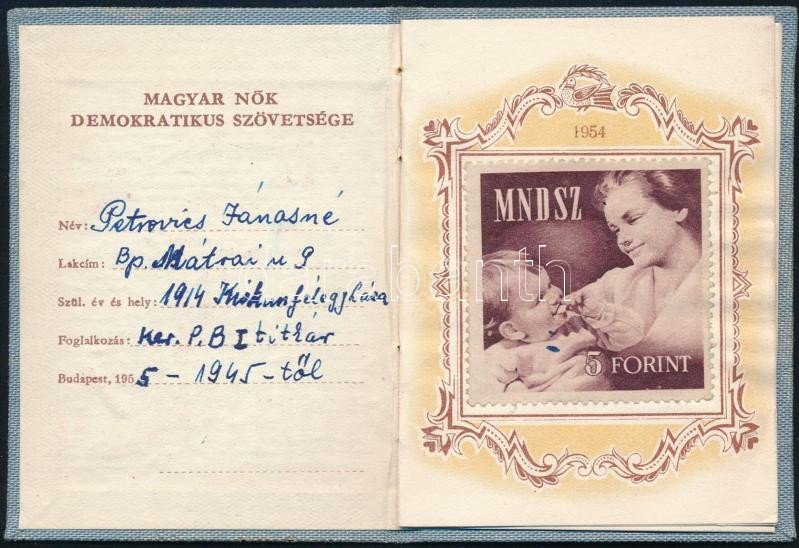 MAGYAR NŐK
DEMOKRATIKUS SZÖVETSÉGE
Név: Petrovics Jánosné
Lakcím: Bp. Mátrai u 9
Szül. év és hely: 1914 Kiskunfélegyháza
Foglalkozás: Ker. P.B I titkár
Budapest, 1955 - 1945-től
1954
MNDSZ
5 FORINT
darabanth